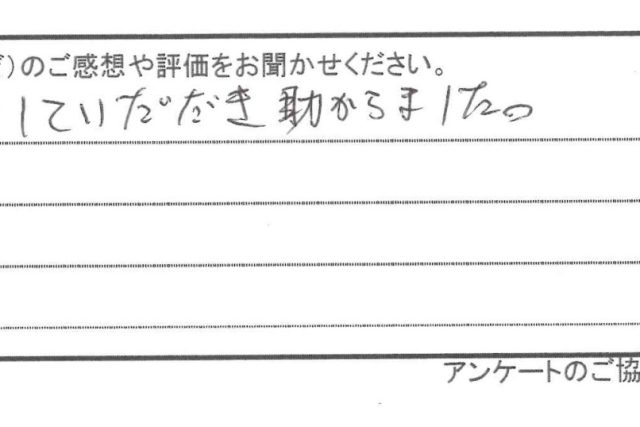 )のご感想や評価をお聞かせください。
していただき助からました。
アンケートのご協